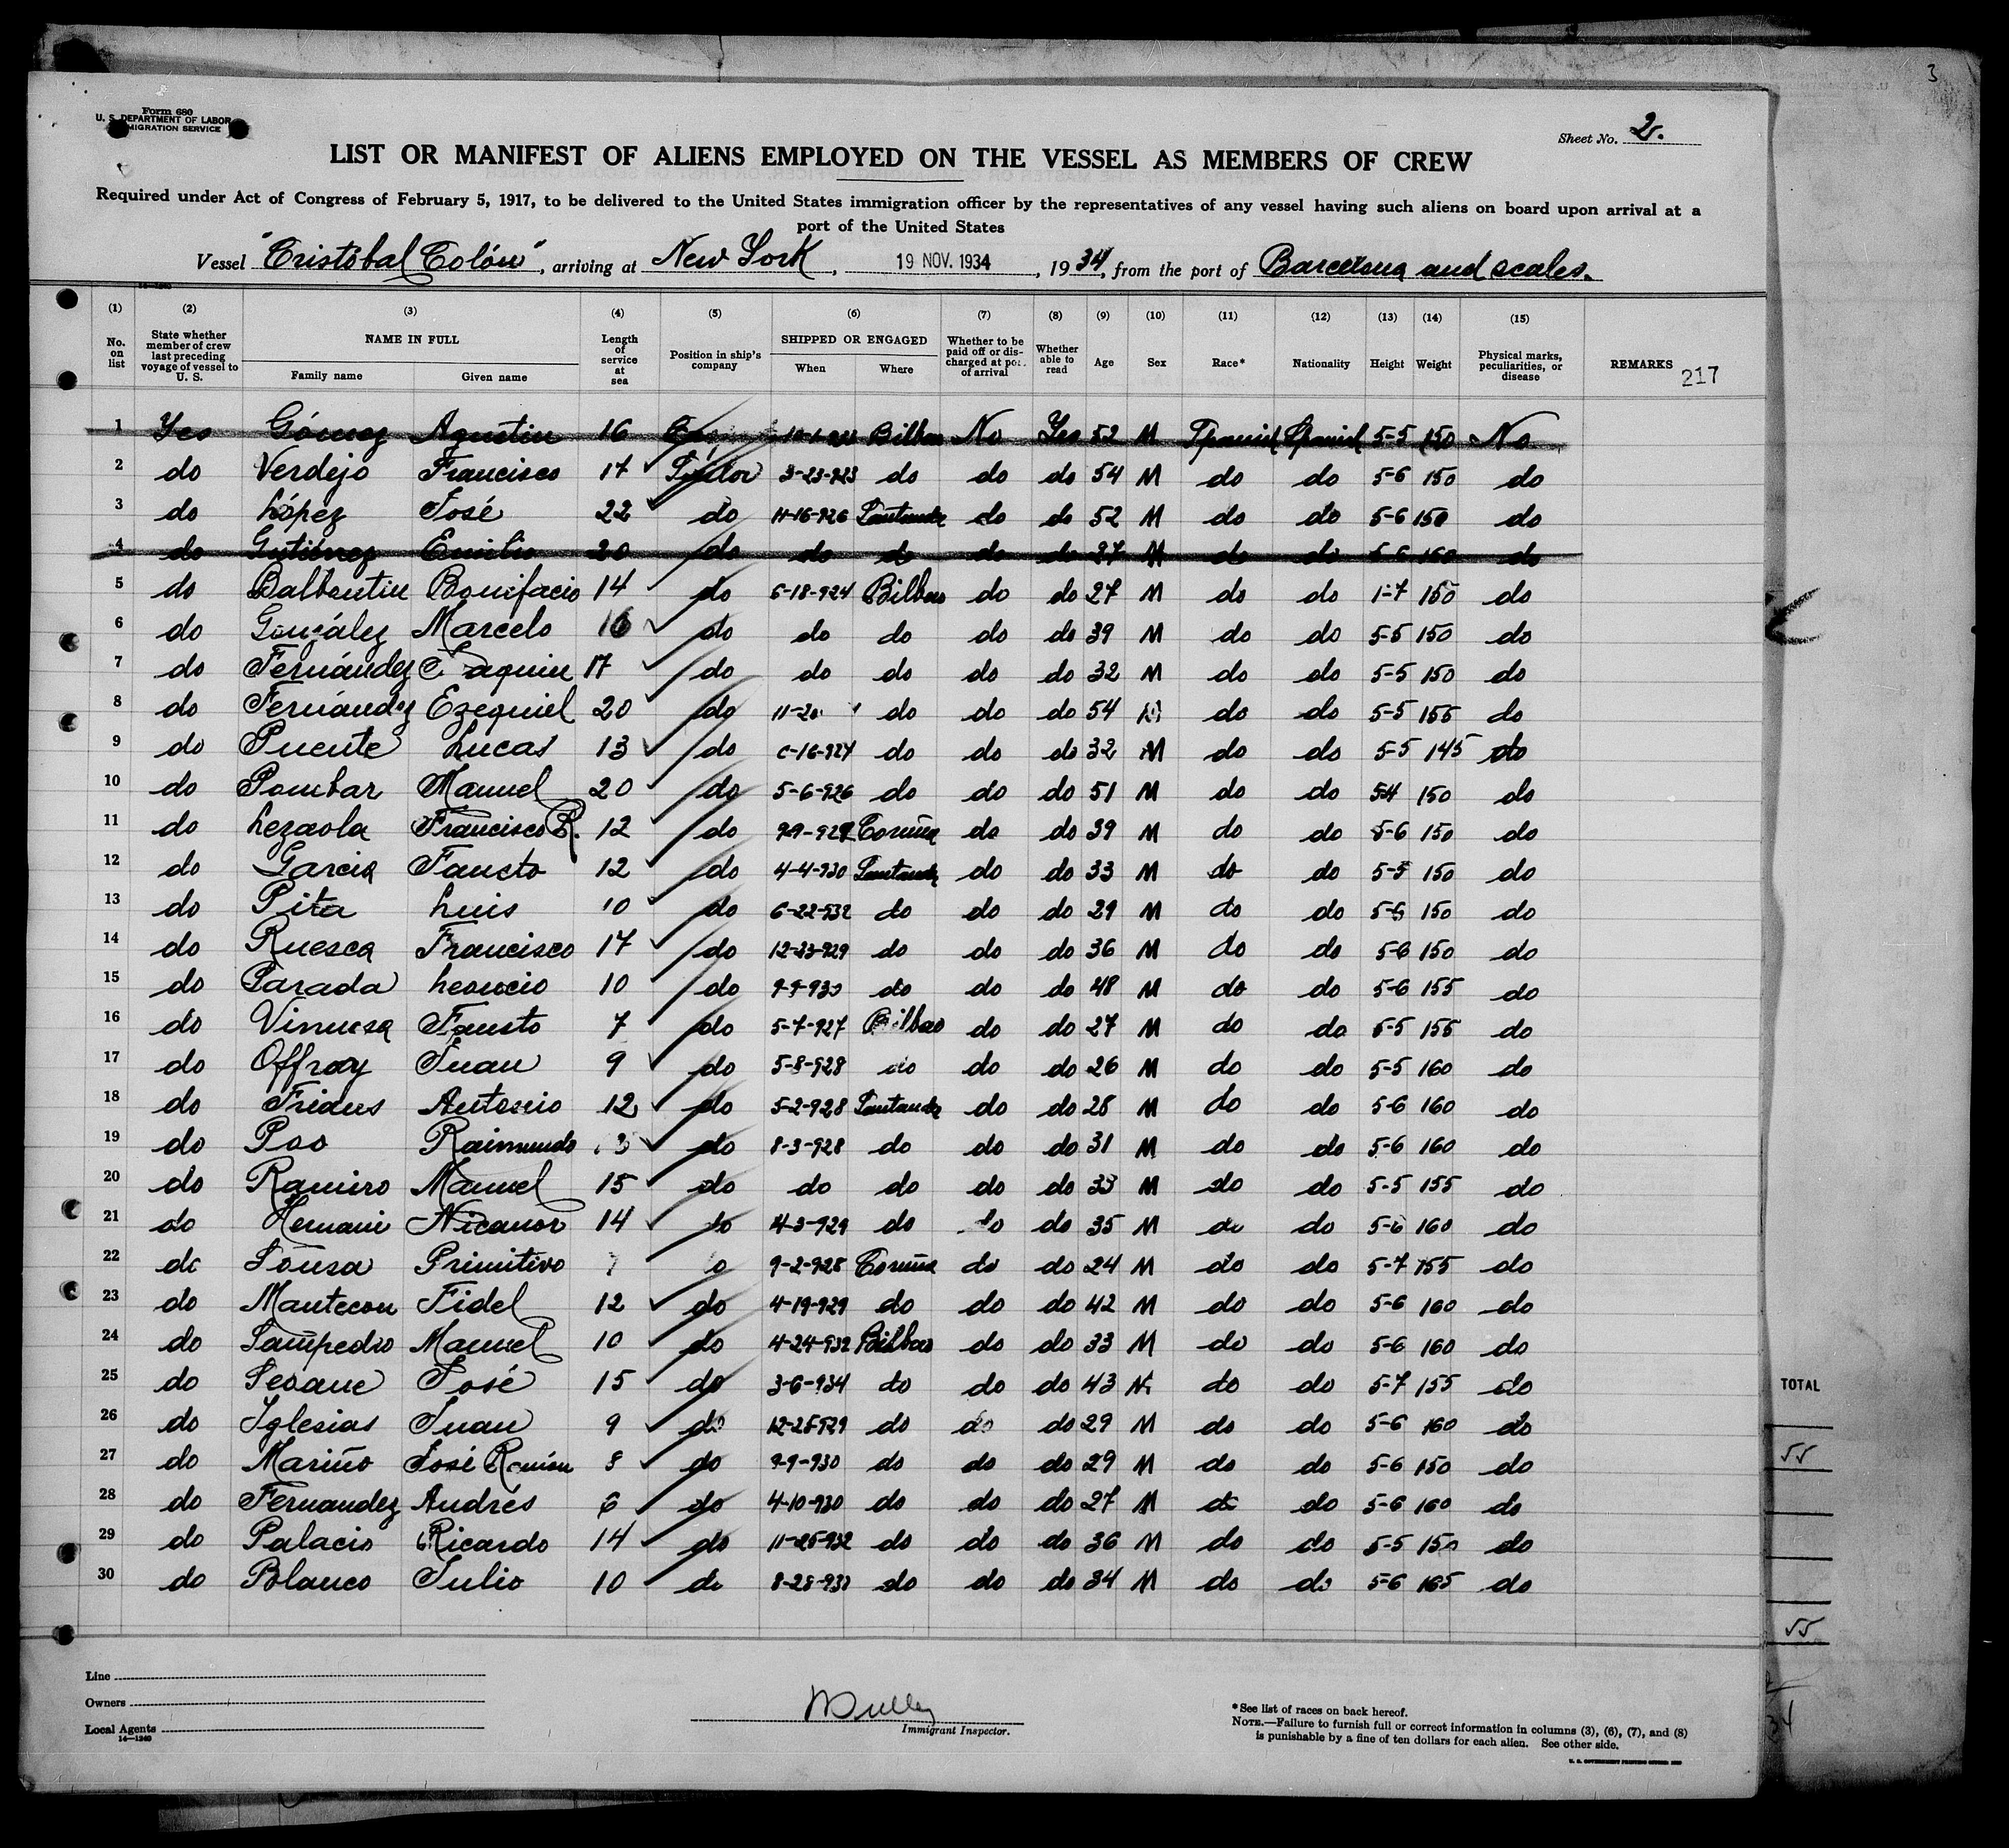 3
Form 680
U. S. DEPARTMENT OF LABOR
IMMIGRATION SERVICE
Sheet No. 2.
LIST OR MANIFEST OF ALIENS EMPLOYED ON THE VESSEL AS MEMBERS OF CREW
Required under Act of Congress of February 5, 1917, to be delivered to the United States immigration officer by the representatives of any vessel having such aliens on board upon arrival at a
port of the United States
Vessel "Cristóbal Colón", arriving at New York, 19 NOV. 1934, 1934, from the port of Barcelona and scales.
(1) (2) (3) (4) (5) (6) (7) (8) (9) (10) (11) (12) (13) (14) (15)
No. on list State whether member of crew last preceding voyage of vessel to U. S. NAME IN FULL Family name Given name Length of service at sea Position in ship's company SHIPPED OR ENGAGED When Where Whether to be paid off or discharged at port of arrival Whether able to read Age Sex Race* Nationality Height Weight Physical marks, peculiarities, or disease REMARKS 217
1 Yes Gómez Agustin 16 Bilbao No Yes 52 M Spanish Spanish 5-5 150 No
2 do Verdejo Francisco 17 3-23-923 do do do 54 M do do 5-6 150 do
3 do López José 22 do 11-16-926 Santander do do 52 M do do 5-6 150 do
4 do Gutiérrez Emilio 20 do do do do do 27 M do do 5-6 160 do
5 do Balbontin Bonifacio 14 do 6-18-924 Bilbao do do 27 M do do 1-7 150 do
6 do González Marcelo 16 do do do do do 39 M do do 5-5 150 do
7 do Fernández 17 do do do do do 32 M do do 5-5 150 do
8 do Fernández Ezequiel 20 do 11-20 do do do 54 M do do 5-5 155 do
9 do Puente Lucas 13 do do do do 32 M do do 5-5 145 do
10 do Pombar Manuel 20 do 5-6-926 do do do 51 M do do 5-4 150 do
11 do Lezaola Francisco R. 12 do Coruña do do 39 M do do 5-6 150 do
12 do Garcia Fausto 12 do 4-4-930 Santander do do 33 M do do 5-5 150 do
13 do Pita Luis 10 do 6-22-932 do do do 29 M do do 5-6 150 do
14 do Ruesca Francisco 17 do 12-23-929 do do do 36 M do do 5-6 150 do
15 do Parada Leoncio 10 do 9-9-930 do do do 48 M do do 5-6 155 do
16 do Vinuesa Fausto 7 do 5-7-927 Bilbao do do 27 M do do 5-5 155 do
17 do Offray Juan 9 do 5-8-928 do do do 26 M do do 5-5 160 do
18 do Antonio 12 do 5-2-928 Santander do do 28 M do do 5-6 160 do
19 do Poo Raimundo do 8-3-928 do do do 31 M do do 5-6 160 do
20 do Ramiro Manuel 15 do do do do do 33 M do do 5-5 155 do
21 do Nicanor 14 do 4-3-929 do do do 35 M do do 5-6 160 do
22 do Sousa Primitivo 9-2-928 Coruña do do 24 M do do 5-7 155 do
23 do Mantecon Fidel 12 do 4-19-929 do do do 42 M do do 5-6 160 do
24 do Sampedro Manuel 10 do 4-24-932 Bilbao do do 33 M do do 5-6 160 do
25 do Seoane José 15 do 3-6-934 do do do 43 M do do 5-7 155 do
26 do Iglesias Juan 9 do 12-28-929 do do do 29 M do do 5-6 160 do
27 do Mariño José Ramón 8 do 9-9-930 do do do 29 M do do 5-6 150 do
28 do Fernandez Andrés 6 do 4-10-930 do do do 27 M do do 5-6 160 do
29 do Palacio Ricardo 14 do 11-25-932 do do do 36 M do do 5-5 150 do
30 do Blanco Julio 10 do do do do 34 M do do 5-6 165 do
TOTAL
55
55
34
Line
Owners
Local Agents
14—1240
Immigrant Inspector.
*See list of races on back hereof.
NOTE.—Failure to furnish full or correct information in columns (3), (6), (7), and (8)
is punishable by a fine of ten dollars for each alien. See other side.